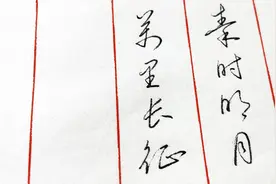 秦时明月
万里长征